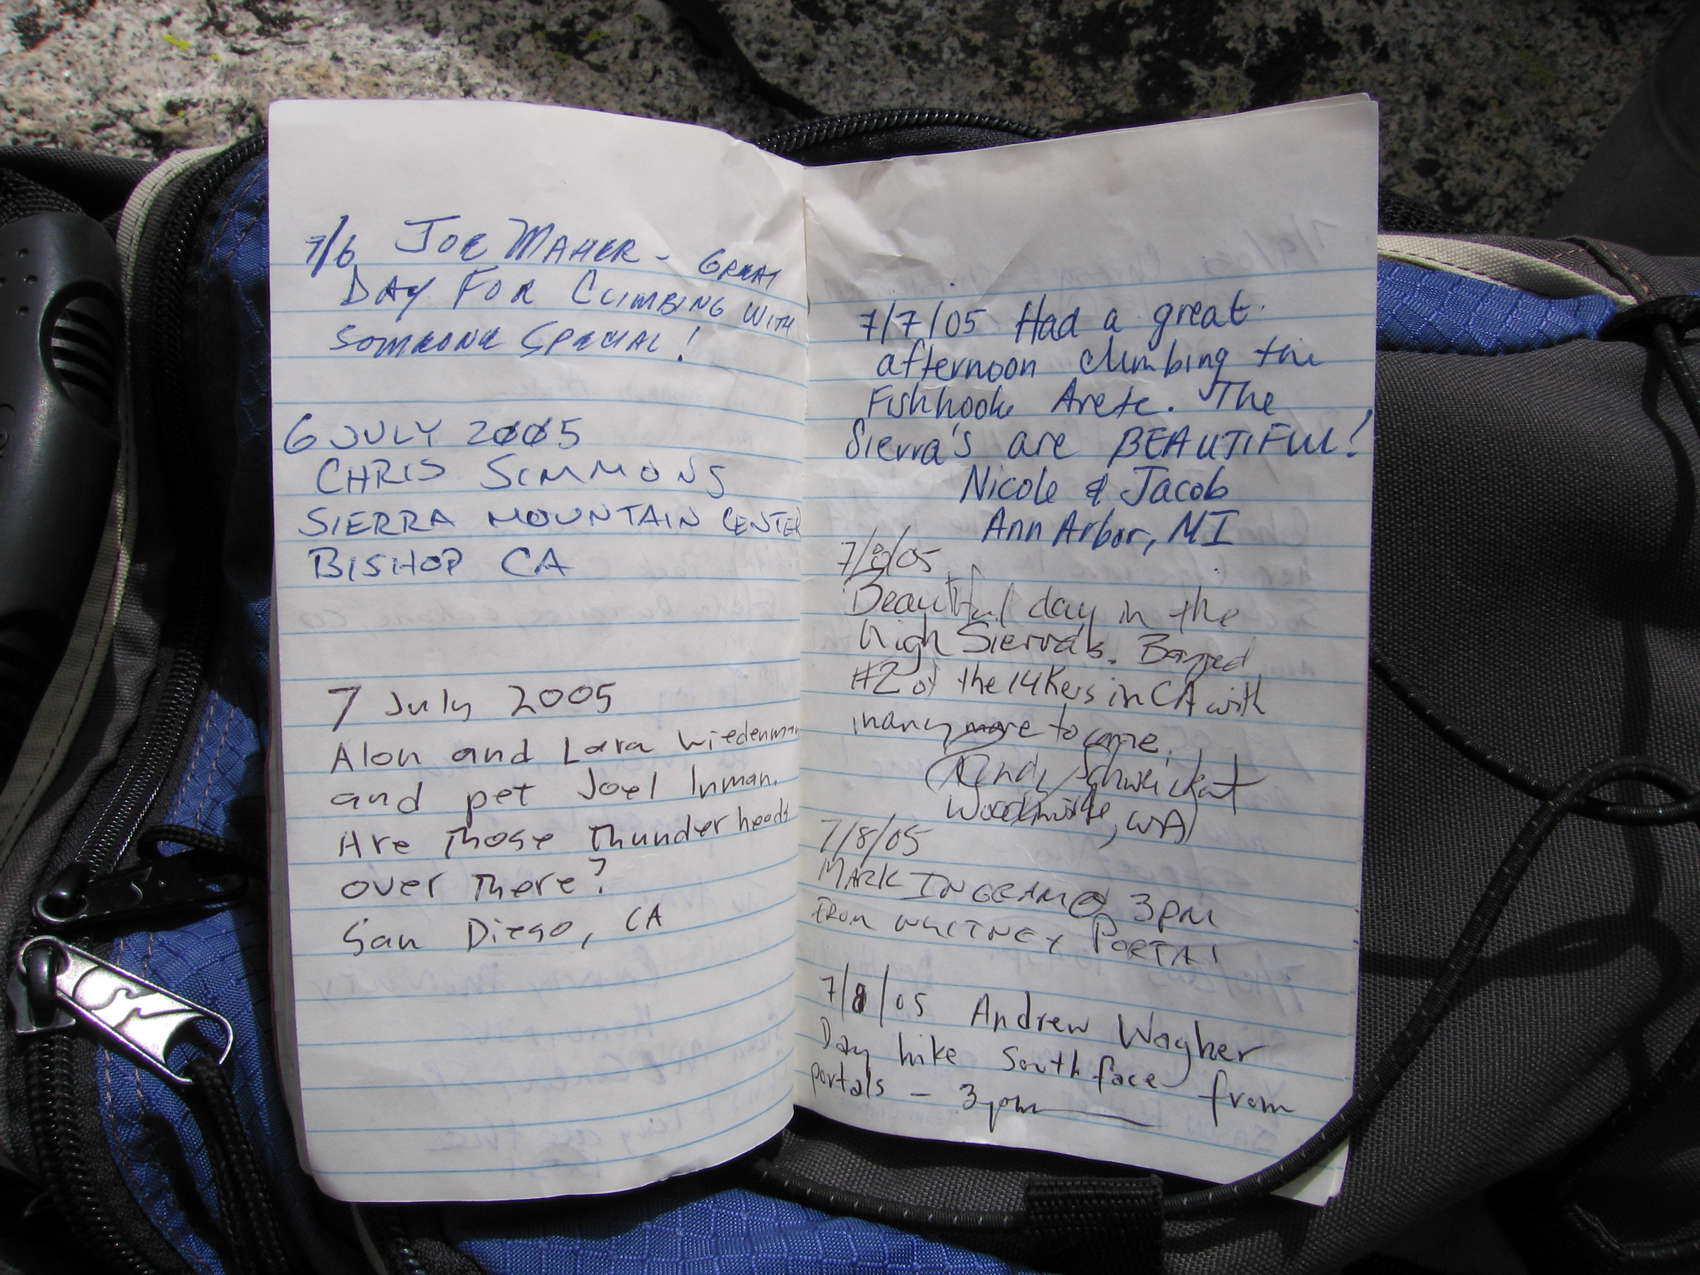 7/6 JOE MAHER - GREAT
DAY FOR CLIMBING WITH
SOMEONE SPECIAL!
6 JULY 2005
CHRIS SIMMONS
SIERRA MOUNTAIN CENTER
BISHOP CA
7 July 2005
Alon and Lara Wiedenman
and pet Joel Inman.
Are those thunderheads
over there?
San Diego, CA
7/7/05 Had a great
afternoon climbing the
Fishhook Arete. The
Sierra's are BEAUTIFUL!
Nicole & Jacob
Ann Arbor, MI
7/8/05
Beautiful day in the
high Sierra's. Bagged
#2 of the 14Kers in CA with
many more to come.
Andy
WA
7/8/05
MARK INGRAM @ 3PM
FROM WHITNEY PORTAL
7/8/05 Andrew Wagher
Day hike South face from
portals - 3pm